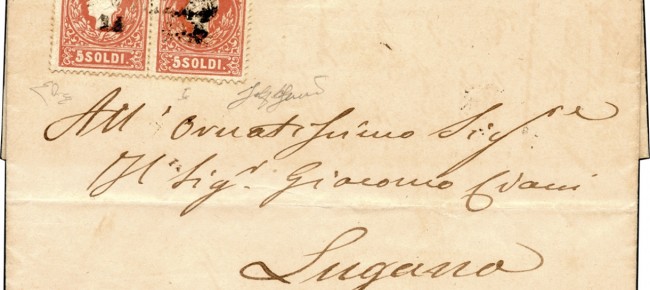 5 SOLDI. 5 SOLDI.
All' Ornatissimo Sigre
Il Sigr Giacomo Ciani
Lugano